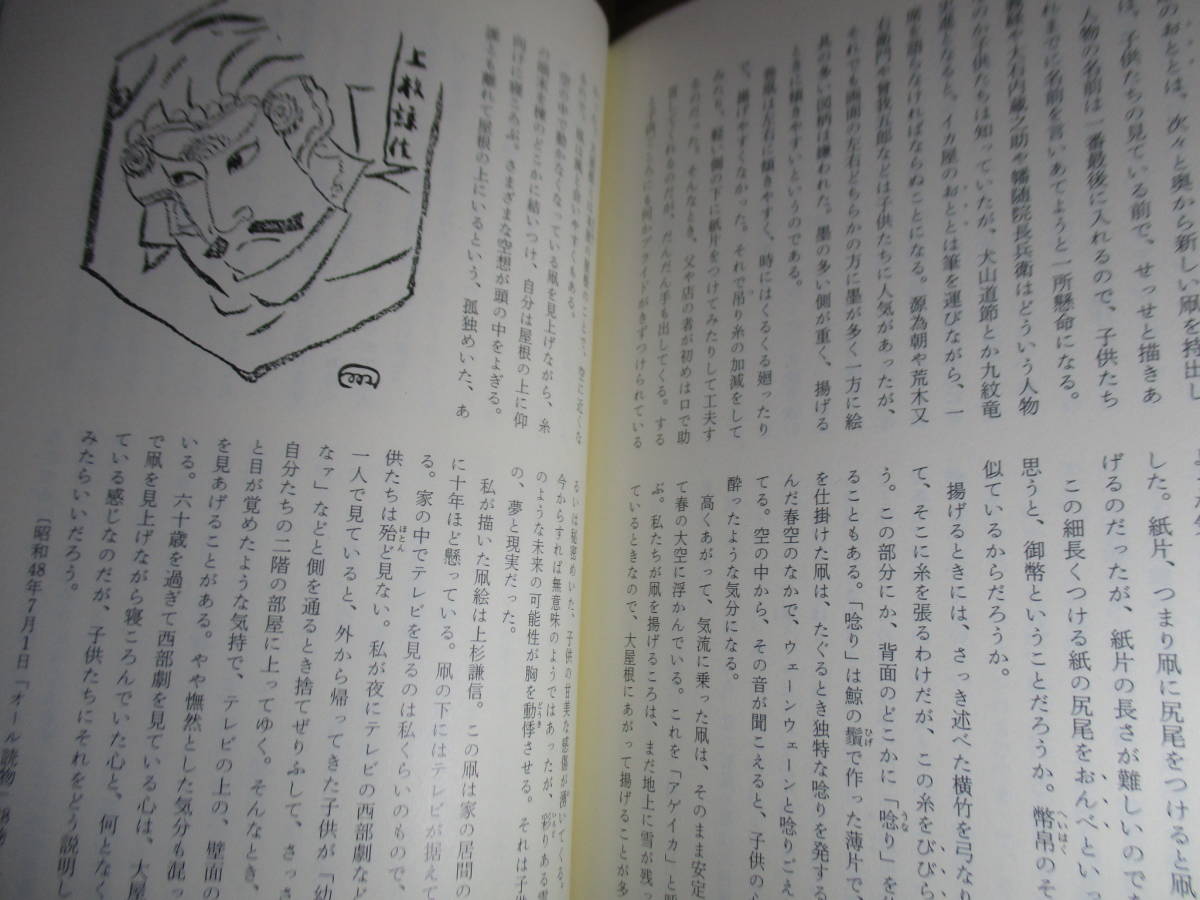 のおととは、次々と奥から新しい凧を持出し
は、子供たちの見ている前で、せっせと描きあ
人物の名前は一番最後に入れるので、子供たち
れまでに名前を言いあてようと一所懸命になる。
義経や大石内蔵之助や幡随院長兵衛はどういう人物
のか子供たちは知っていたが、犬山道節とか九紋竜
史進となると、イカ屋のおととは筆を運びながら、一
席を語らなければならぬことになる。源為朝や荒木又
右衛門や曾我五郎などは子供たちに人気があったが、
それでも画面の左右どちらかの方に墨が多く一方に絵
具の多い図柄は嫌われた。墨の多い側が重く、揚げる
ときに傾きやすいというのである。
角凧は左右に傾きやすく、時にはくるくる廻ったり
で、揚げやすくなかった。それで吊り糸の加減をして
みたり、軽い側の下に紙片をつけてみたりして工夫す
るのだった。そんなとき、父や店の者が初めは口で助
言してくれるのだが、だんだん手も出してくる。する
と子供ごころにも何かプライドがきずつけられている
した。紙片、つまり凧に尻尾をつける
げるのだったが、紙片の長さが難しいので
この細長くつける紙の尻尾をおんべといっ
思うと、御幣ということだろうか。幣帛のそ
似ているからだろうか。
揚げるときには、さっき述べた横竹を弓なり
て、そこに糸を張るわけだが、この糸をびびら
う。この部分にか、背面のどこかに「唸り」を
ることもある。「唸り」は鯨の鬚で作った薄片で、
を仕掛けた凧は、たぐるとき独特な唸りを発する
んだ春空のなかで、ウェーンウェーンと唸りごえ
てる。空の中から、その音が聞こえると、子供の
酔ったような気分になる。
高くあがって、気流に乗った凧は、そのまま安定
て春の大空に浮かんでいる。これを「アゲイカ」と
ぶ。私たちが凧を揚げるころは、まだ地上に雪が残っ
ているときなので、大屋根にあがって揚げることが多
上杉謙信
空の中で動かなくなっている凧を見上げながら、糸
の端を棟のどこかに結いつけ、自分は屋根の上に仰
向けに寝ころぶ。さまざまな空想が頭の中をよぎる。
誰とも離れて屋根の上にいるという、孤独めいた、あ
るいは秘密めいた、子供の甘美な感傷が湧いてくる。
今からすれば無意味のようではあったが、彩りある雲
のような未来の可能性が胸を動悸させる。それは子供
の、夢と現実だった。
私が描いた凧絵は上杉謙信。この凧は家の居間の
に十年ほど懸っている。凧の下にはテレビが据えて
る。家の中でテレビを見るのは私くらいのもので、
供たちは殆ど見ない。私が夜にテレビの西部劇など
一人で見ていると、外から帰ってきた子供が「幼
なァ」などと側を通るとき捨てぜりふして、さっさ
自分たちの二階の部屋に上ってゆく。そんなとき、
と目が覚めたような気持で、テレビの上の、壁面の
を見あげることがある。やや憮然とした気分も混っ
いる。六十歳を過ぎて西部劇を見ている心は、大屋
で凧を見上げながら寝ころんでいた心と、何となく
ている感じなのだが、子供たちにそれをどう説明し
みたらいいだろう。
〔昭和48年7月1日「オール読物」